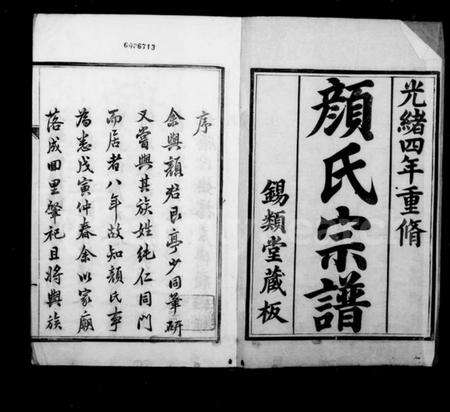 光緒四年重脩
顏氏宗譜
錫類堂藏板
6476713
序
余與顏君艮亭少同筆硯
又嘗與其族姓純仁同門
而居者八年故知顏氏事
為悉戊寅仲春余以家廟
落成回里肇祀且將與族